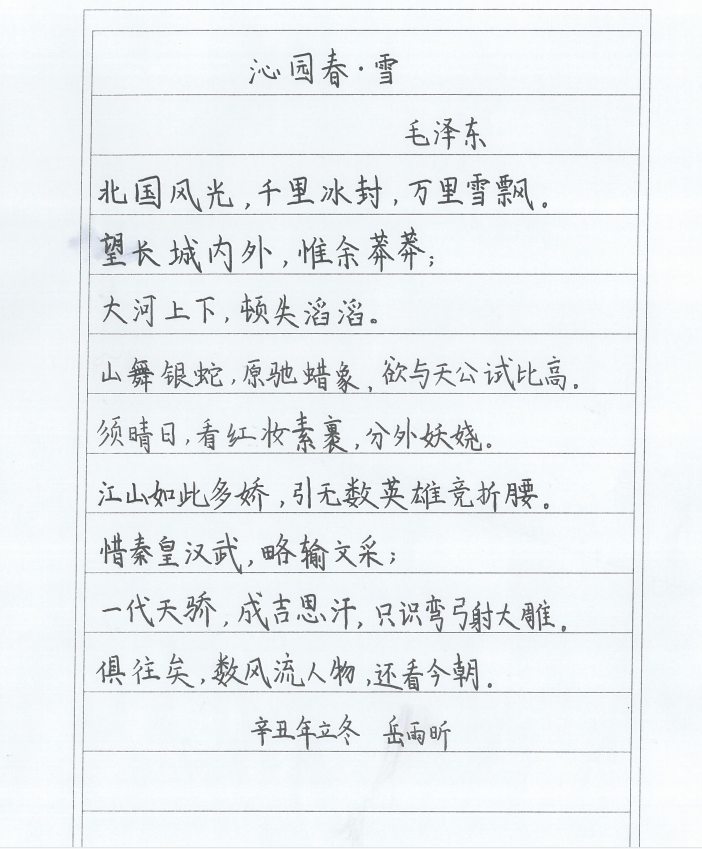 沁园春·雪
毛泽东
北国风光,千里冰封,万里雪飘。
望长城内外,惟余莽莽;
大河上下,顿失滔滔。
山舞银蛇,原驰蜡象,欲与天公试比高。
须晴日,看红妆素裹,分外妖娆。
江山如此多娇,引无数英雄竞折腰。
惜秦皇汉武,略输文采;
一代天骄,成吉思汗,只识弯弓射大雕。
俱往矣,数风流人物,还看今朝。
辛丑年立冬 岳雨昕